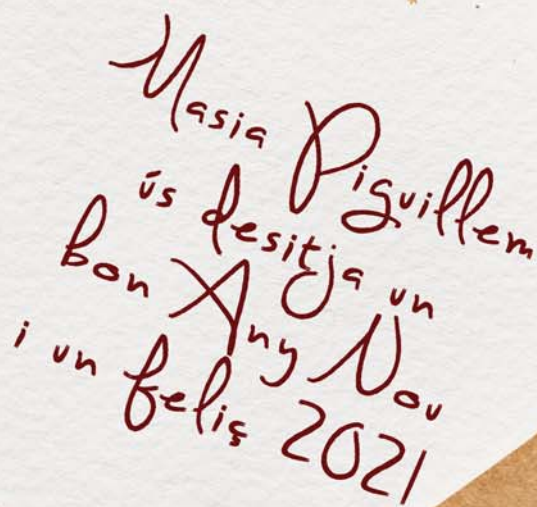 Masia Piguillem
ús desitja un
bon Any Nou
i un feliç 2021